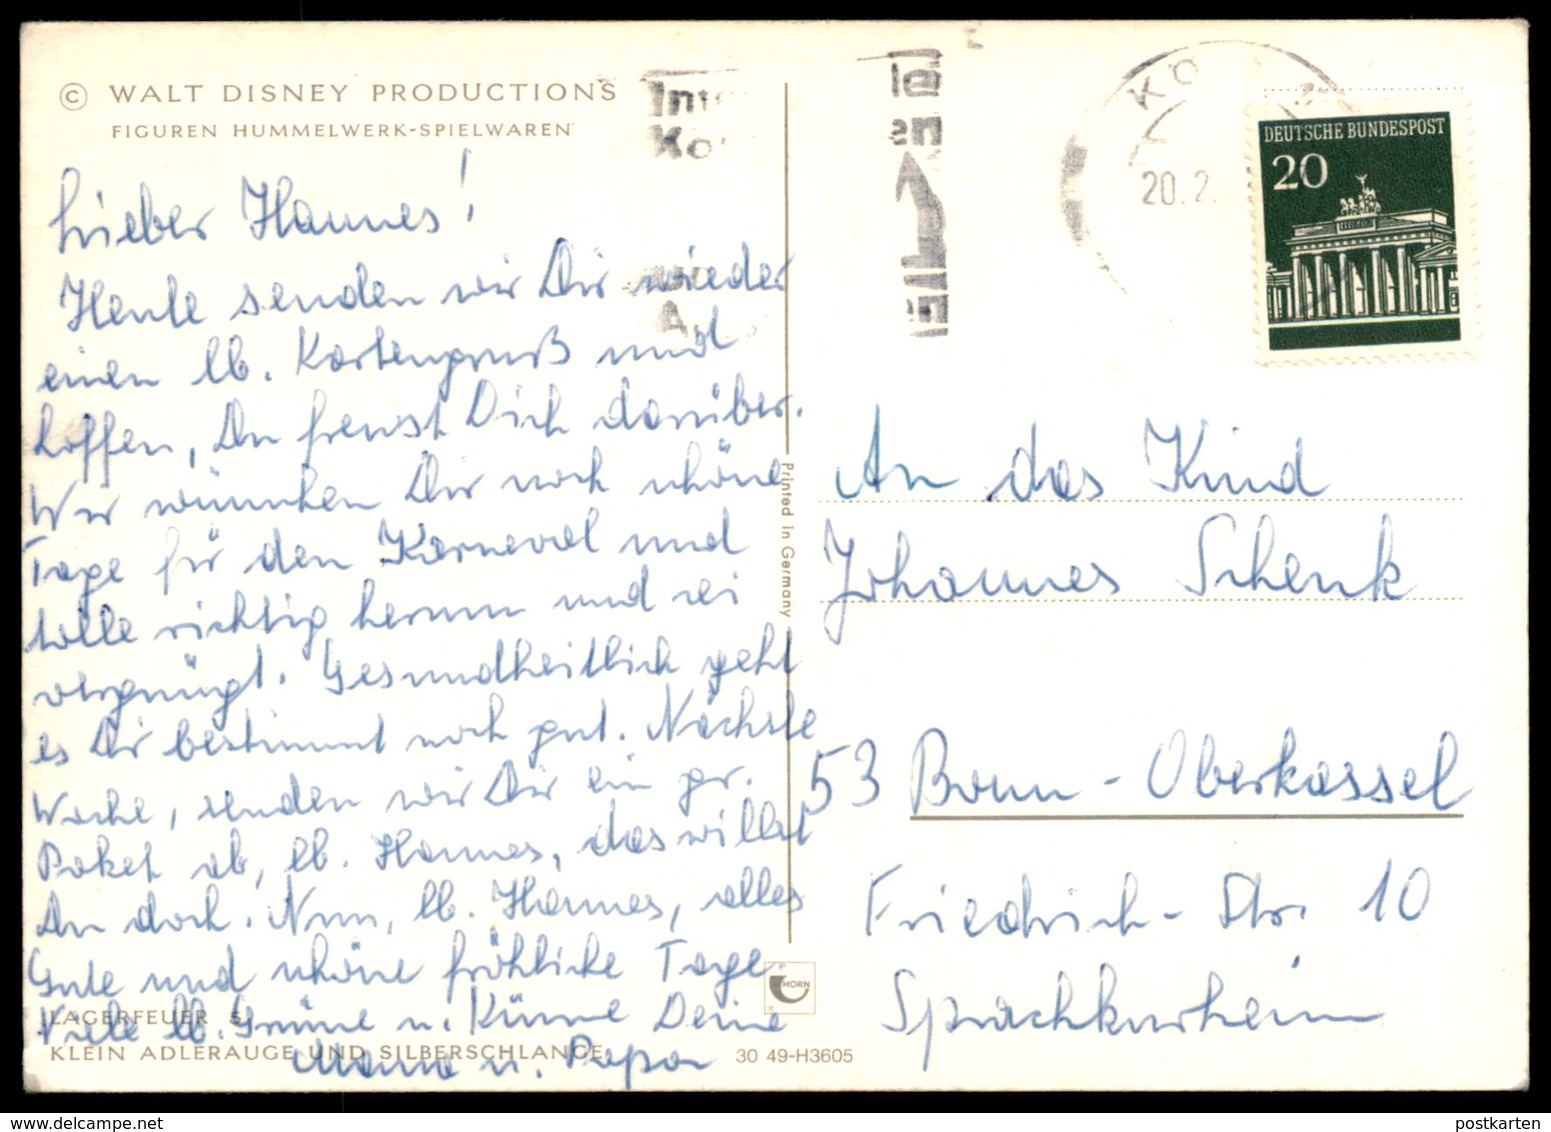 © WALT DISNEY PRODUCTIONS
FIGUREN HUMMELWERK-SPIELWAREN
Lieber Hannes!
Heute senden wir Dir wieder
einen lb. Kartengruß und
hoffen, Du freust Dich darüber.
Wir wünschen Dir noch schöne
Tage für den Karneval und
tolle richtig herum und sei
vergnügt. Gesundheitlich geht
es Dir bestimmt noch gut. Nächste
Woche, senden wir Dir ein gr.
Paket ab, lb. Hannes, das willst
Du doch. Nun, lb. Hannes, alles
Gute und schöne fröhliche Tage.
Viele lb. Grüsse u. Küsse Deine
Mama u. Papa
LAGERFEUER 5
KLEIN ADLERAUGE UND SILBERSCHLANGE
Printed in Germany
HORN
30 49-H3605
KÖ
20.2.
DEUTSCHE BUNDESPOST
20
An das Kind
Johannes Schenk
53 Bonn-Oberkassel
Friedrich-Str. 10
Sprachkurheim
postkarten